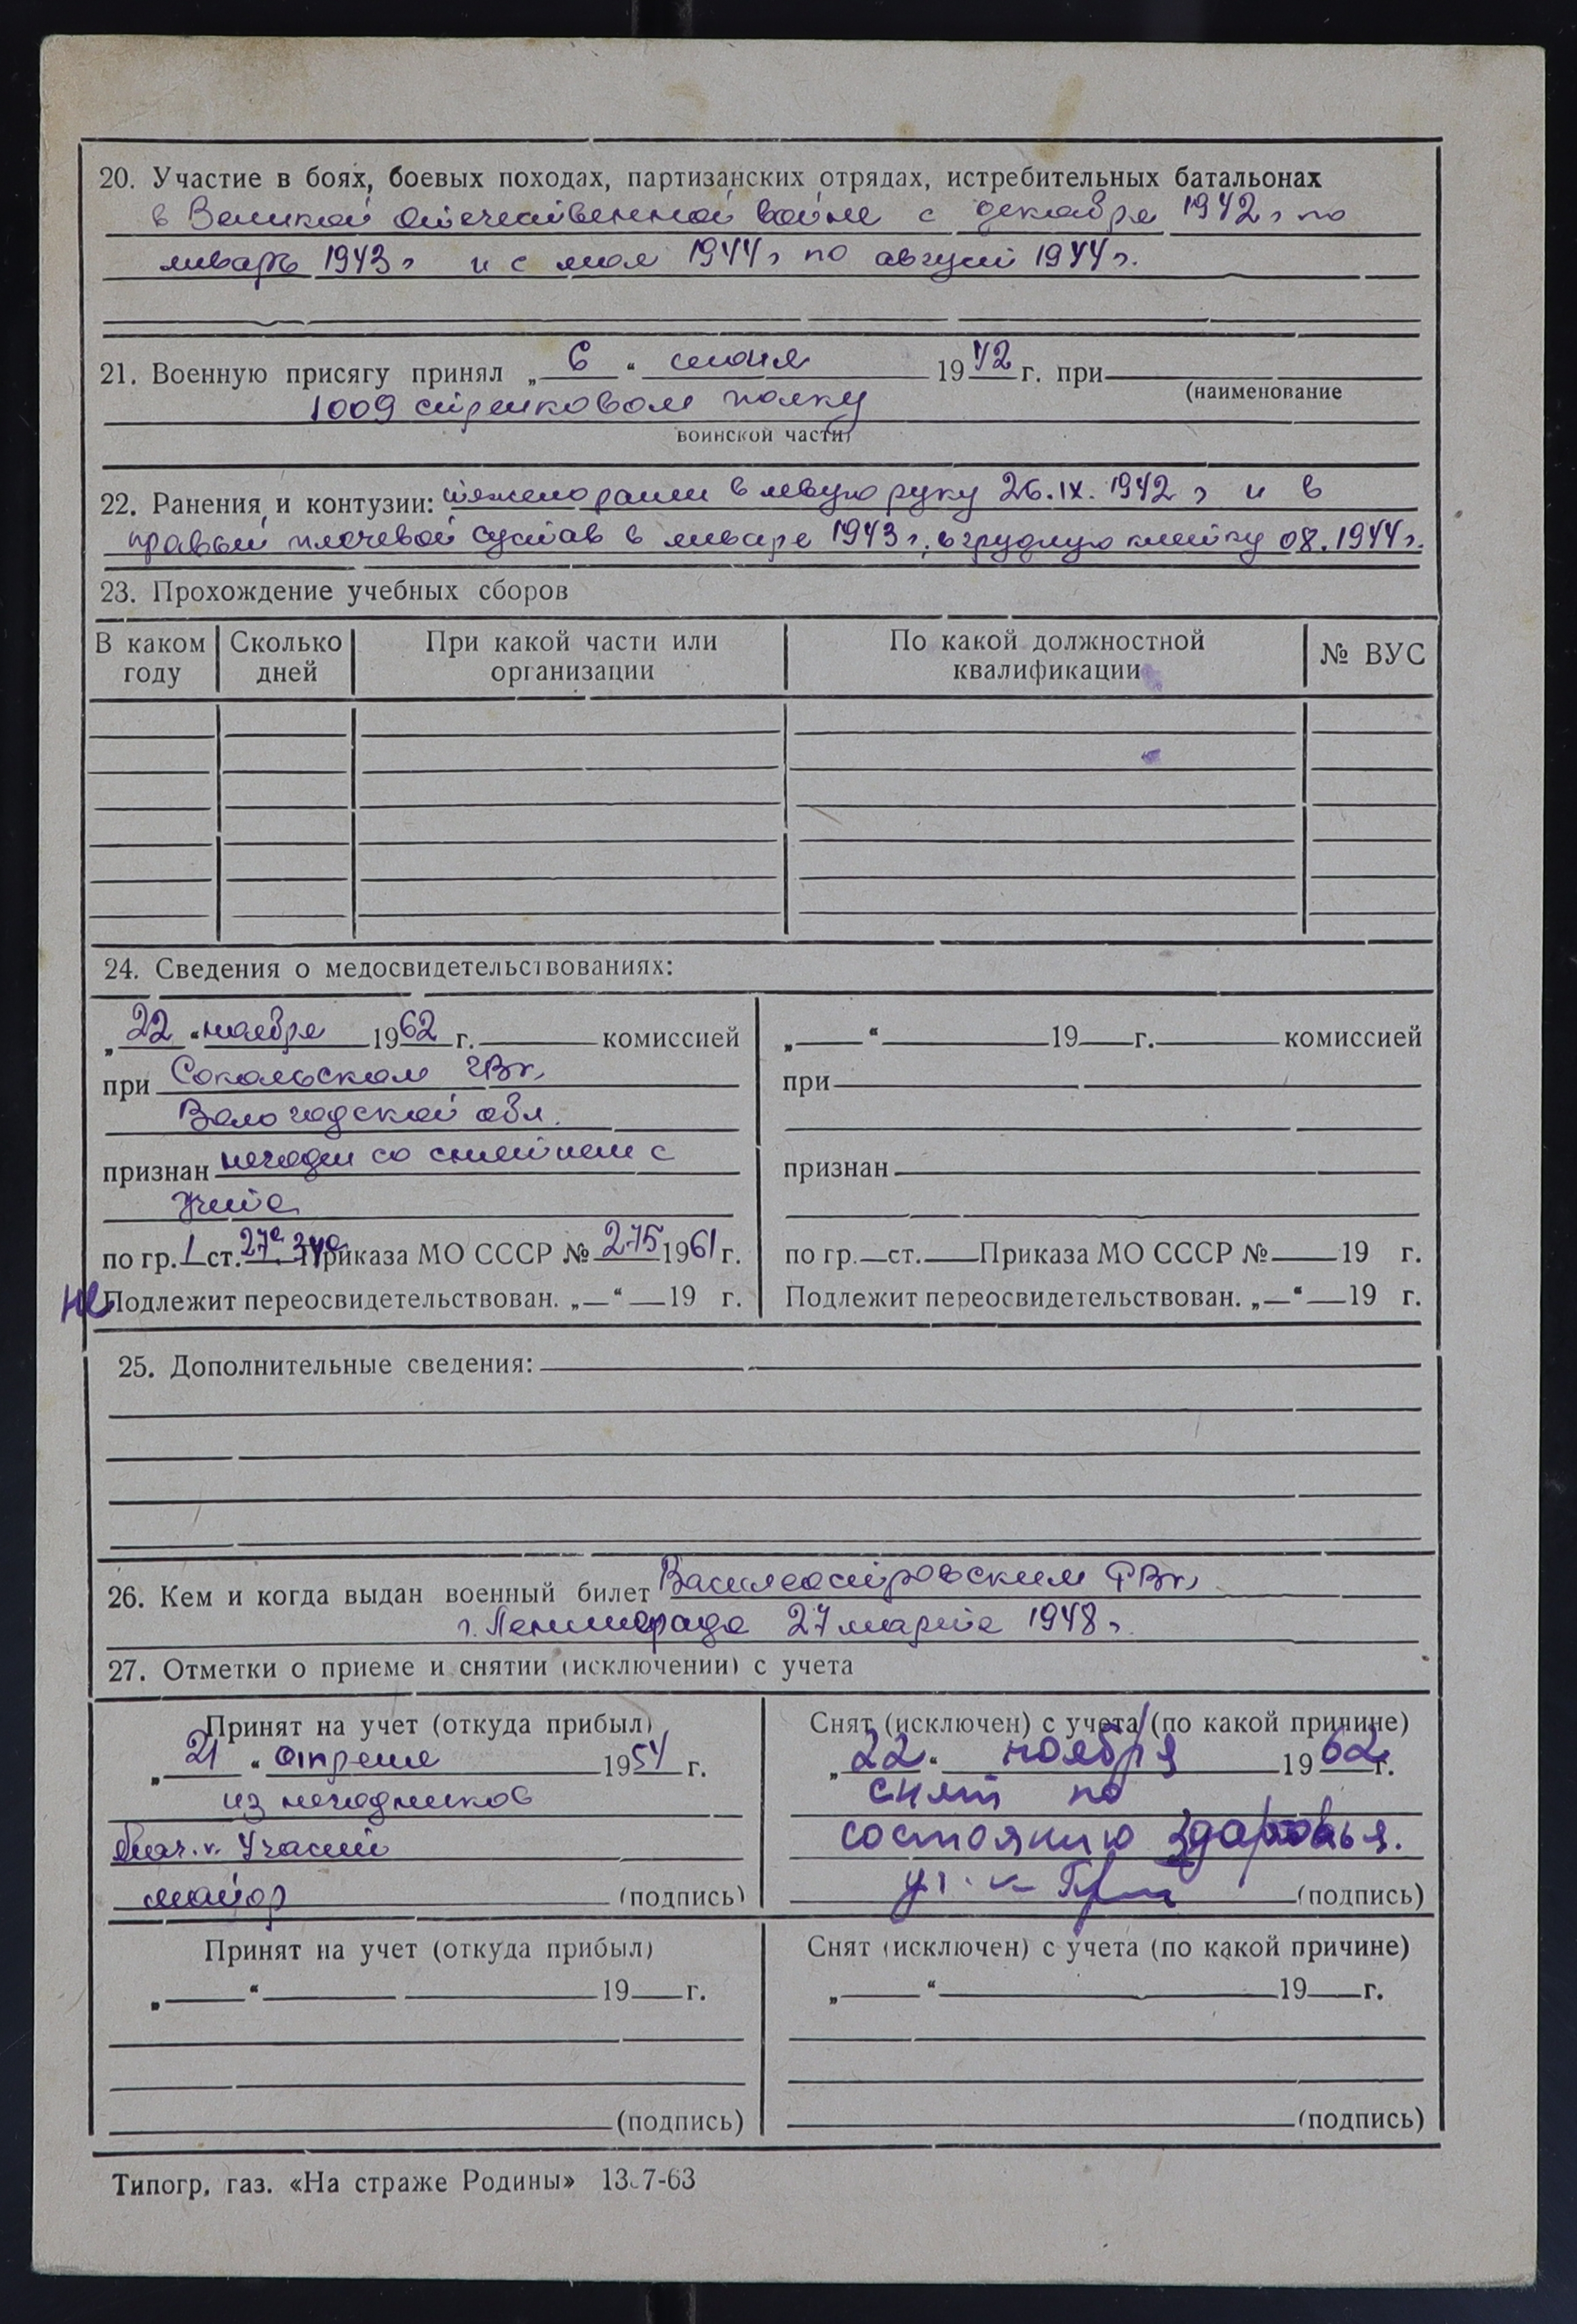 20. Участие в боях, боевых походах, партизанских отрядах, истребительных батальонах
в Великой Отечественной войне с декабря 1942 г по
январь 1943 г и с мая 1944 г по август 1944 г.
21. Военную присягу принял „ 6 “ июня 1942 г. при
(наименование
1009 стрелковом полку
воинской части)
22. Ранения и контузии: тяжело ранен в левую руку 26.IX.1942 г и в
правый плечевой сустав в январе 1943 г., в грудную клетку 08.1944 г.
23. Прохождение учебных сборов
В каком году Сколько дней При какой части или организации По какой должностной квалификации № ВУС
24. Сведения о медосвидетельствованиях:
„ 22 “ ноября 1962 г. комиссией
при Сокольском ГВК
Вологодской обл.
признан негоден со снятием с
учета
по гр. I ст. 27а 34а Приказа МО СССР № 275 1961 г.
не Подлежит переосвидетельствован. „ “ 19 г.
„ “ 19 г. комиссией
при
признан
по гр. ст. Приказа МО СССР № 19 г.
Подлежит переосвидетельствован. „ “ 19 г.
25. Дополнительные сведения:
26. Кем и когда выдан военный билет Василеостровским РВК
г. Ленинграда 27 марта 1948 г.
27. Отметки о приеме и снятии (исключении) с учета
Принят на учет (откуда прибыл)
„ 21 “ апреля 1954 г.
из негодников
Нач. части
майор (подпись)
Снят (исключен) с учета (по какой причине)
„ 22 “ ноября 1962 г.
снят по
состоянию здоровья.
(подпись)
Принят на учет (откуда прибыл)
„ “ 19 г.
(подпись)
Снят (исключен) с учета (по какой причине)
„ “ 19 г.
(подпись)
Типогр. газ. «На страже Родины» 7-63